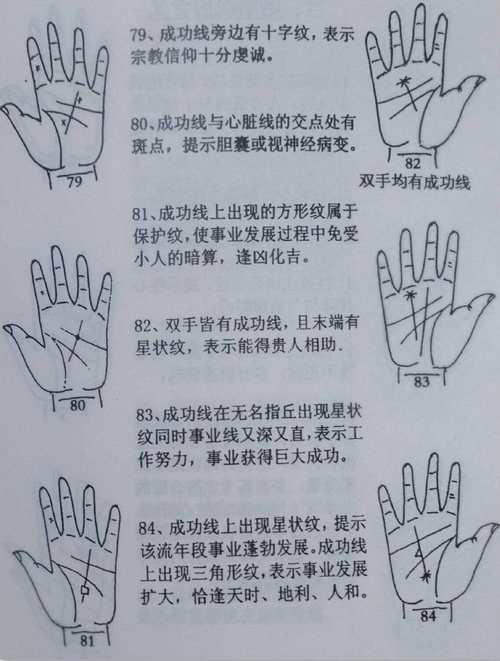 79、成功线旁边有十字纹，表示
宗教信仰十分虔诚。
80、成功线与心脏线的交点处有
斑点，提示胆囊或视神经病变。
81、成功线上出现的方形纹属于
保护纹，使事业发展过程中免受
小人的暗算，逢凶化吉。
82、双手皆有成功线，且末端有
星状纹，表示能得贵人相助.
83、成功线在无名指丘出现星状
纹同时事业线又深又直，表示工
作努力，事业获得巨大成功。
84、成功线上出现星状纹，提示
该流年段事业蓬勃发展。成功线
上出现三角形纹，表示事业发展
扩大，恰逢天时、地利、人和。
79
80
81
82
双手均有成功线
83
84